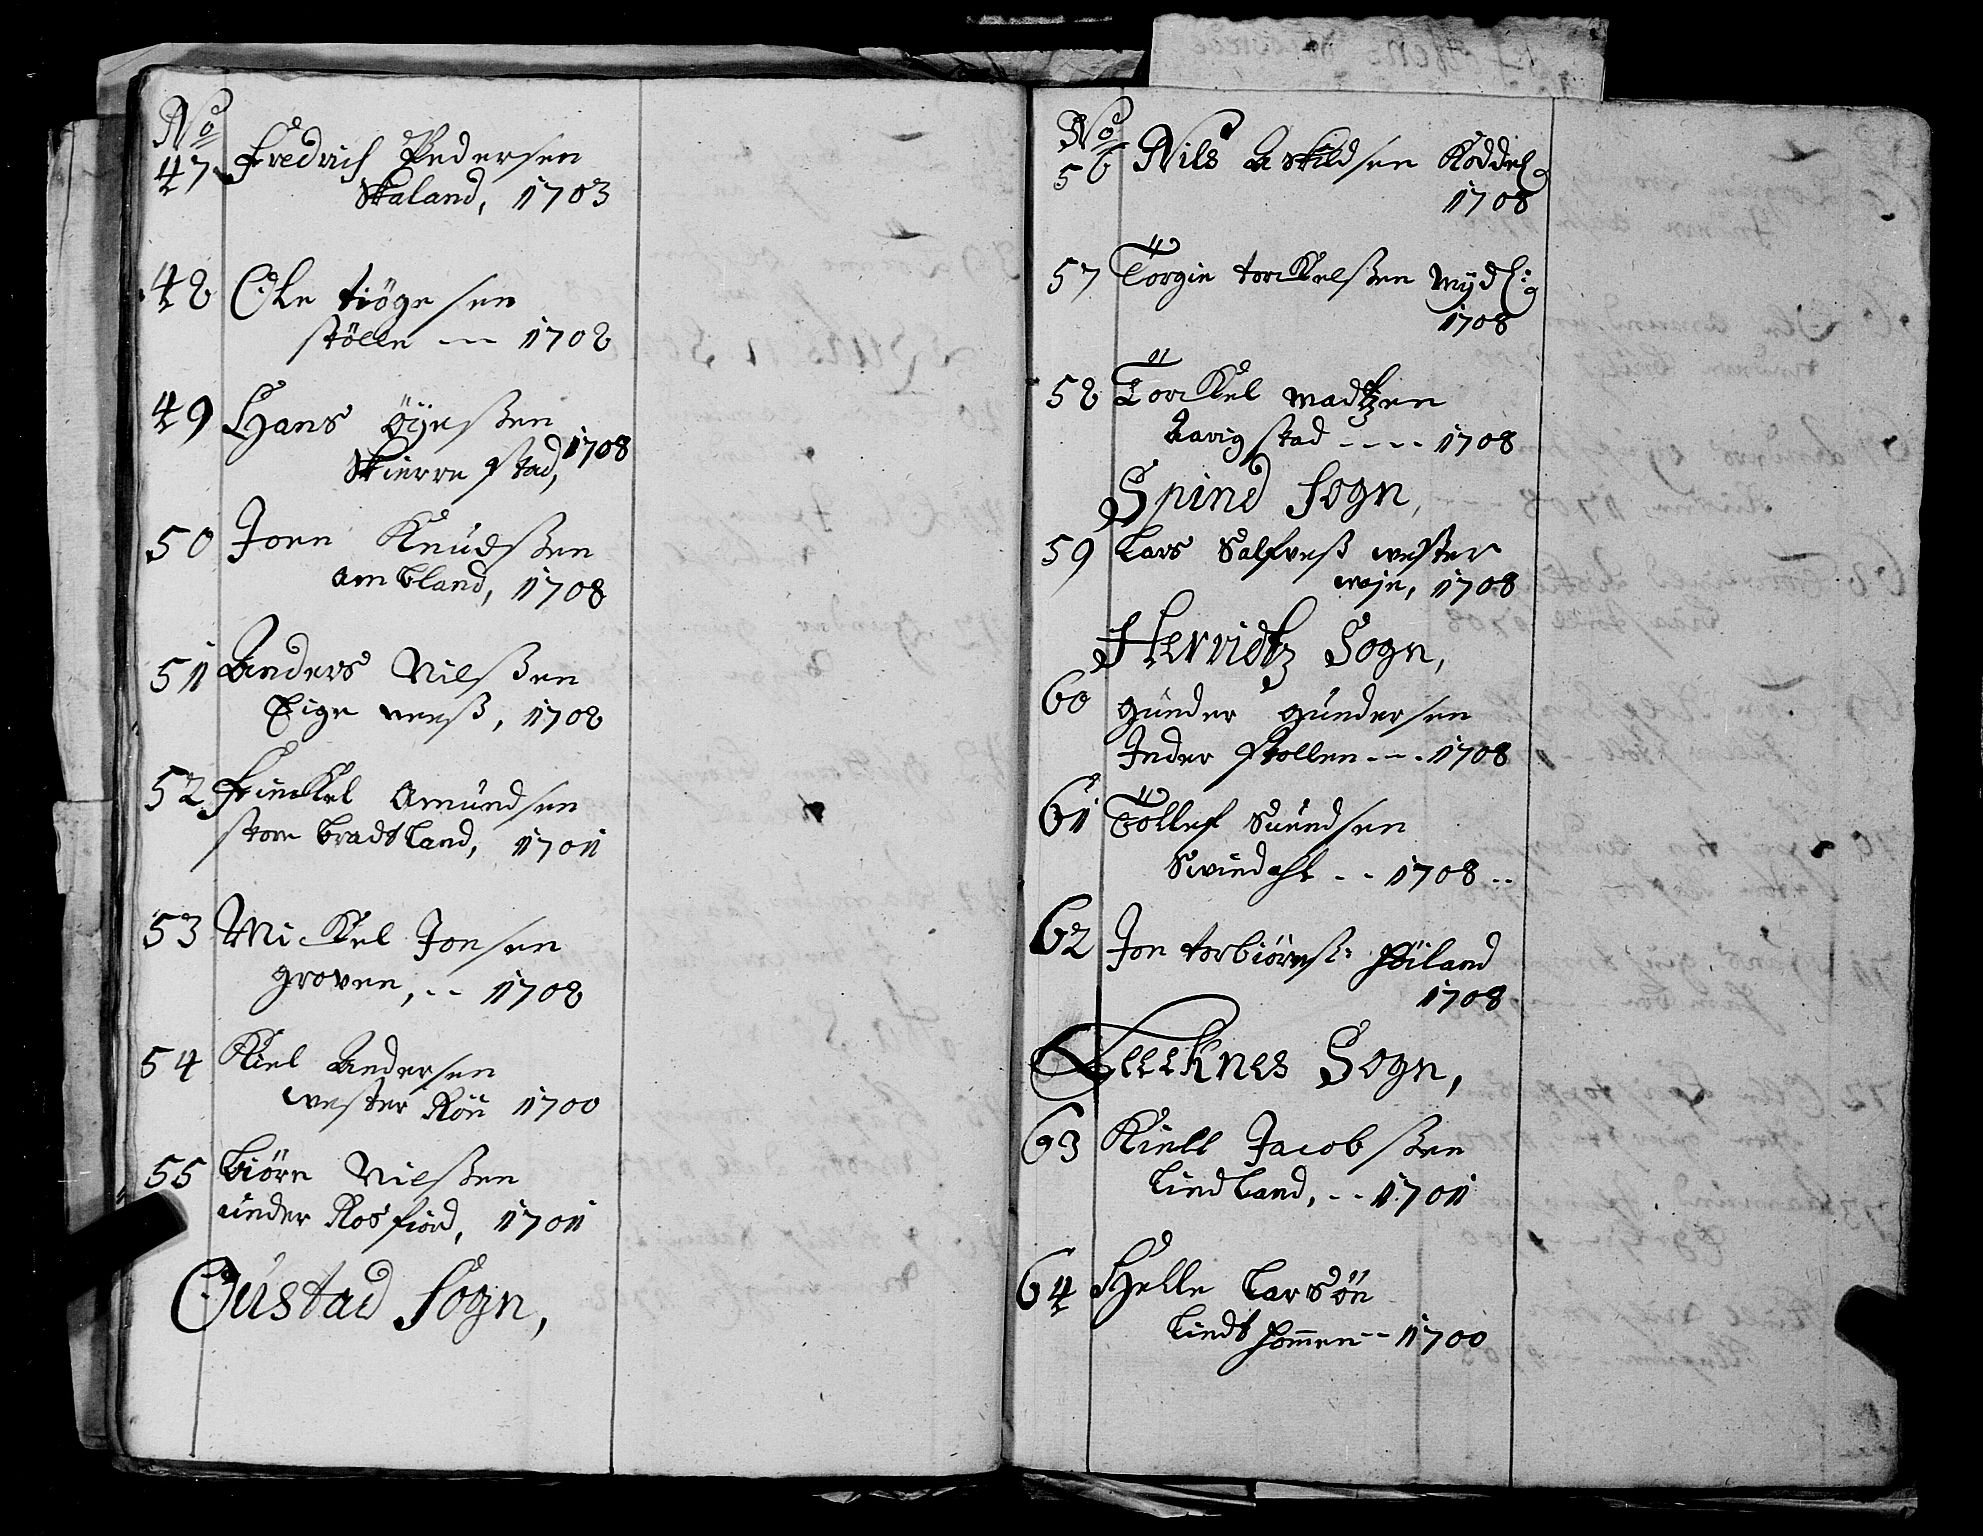 No
47 Fredrich Pedersen
Skaland, 1703
48 Ole tiögesen
stölle --- 1708
49 Hans Öÿesßen
Skierrestad, 1708
50 Joen Knüdsßen
Ambland, 1708
51 Anders Nilsßen
Eige neeß, 1708
52 Frinckel Amündsen
store bradtland, 1701
53 Mickel Jonsen
groven, -- 1708
54 Kiel Andersen
wester Röü 1700
55 Biörn Nilsßen
ünder Rosfiord, 1701
Oüstad Sogn,
No
56 Nils Askildsen
1708
57 Törgie torckelsßen
1708
58 Törckel madtzen
Aavigstad ---- 1708
Spind Sogn,
59 Lars Salfveß wester
weje, 1708
Herridtz Sogn,
60 günder gündersen
Inder stollen --- 1708
61 Töllef Süündsen
Swindahl -- 1708 --
62 Jon torbiörnß: Höiland
1708
Feeknes Sogn,
63 Kiell Jacobsßen
Lindland, -- 1701
64 Helle Larsön
Lindt Homen -- 1700